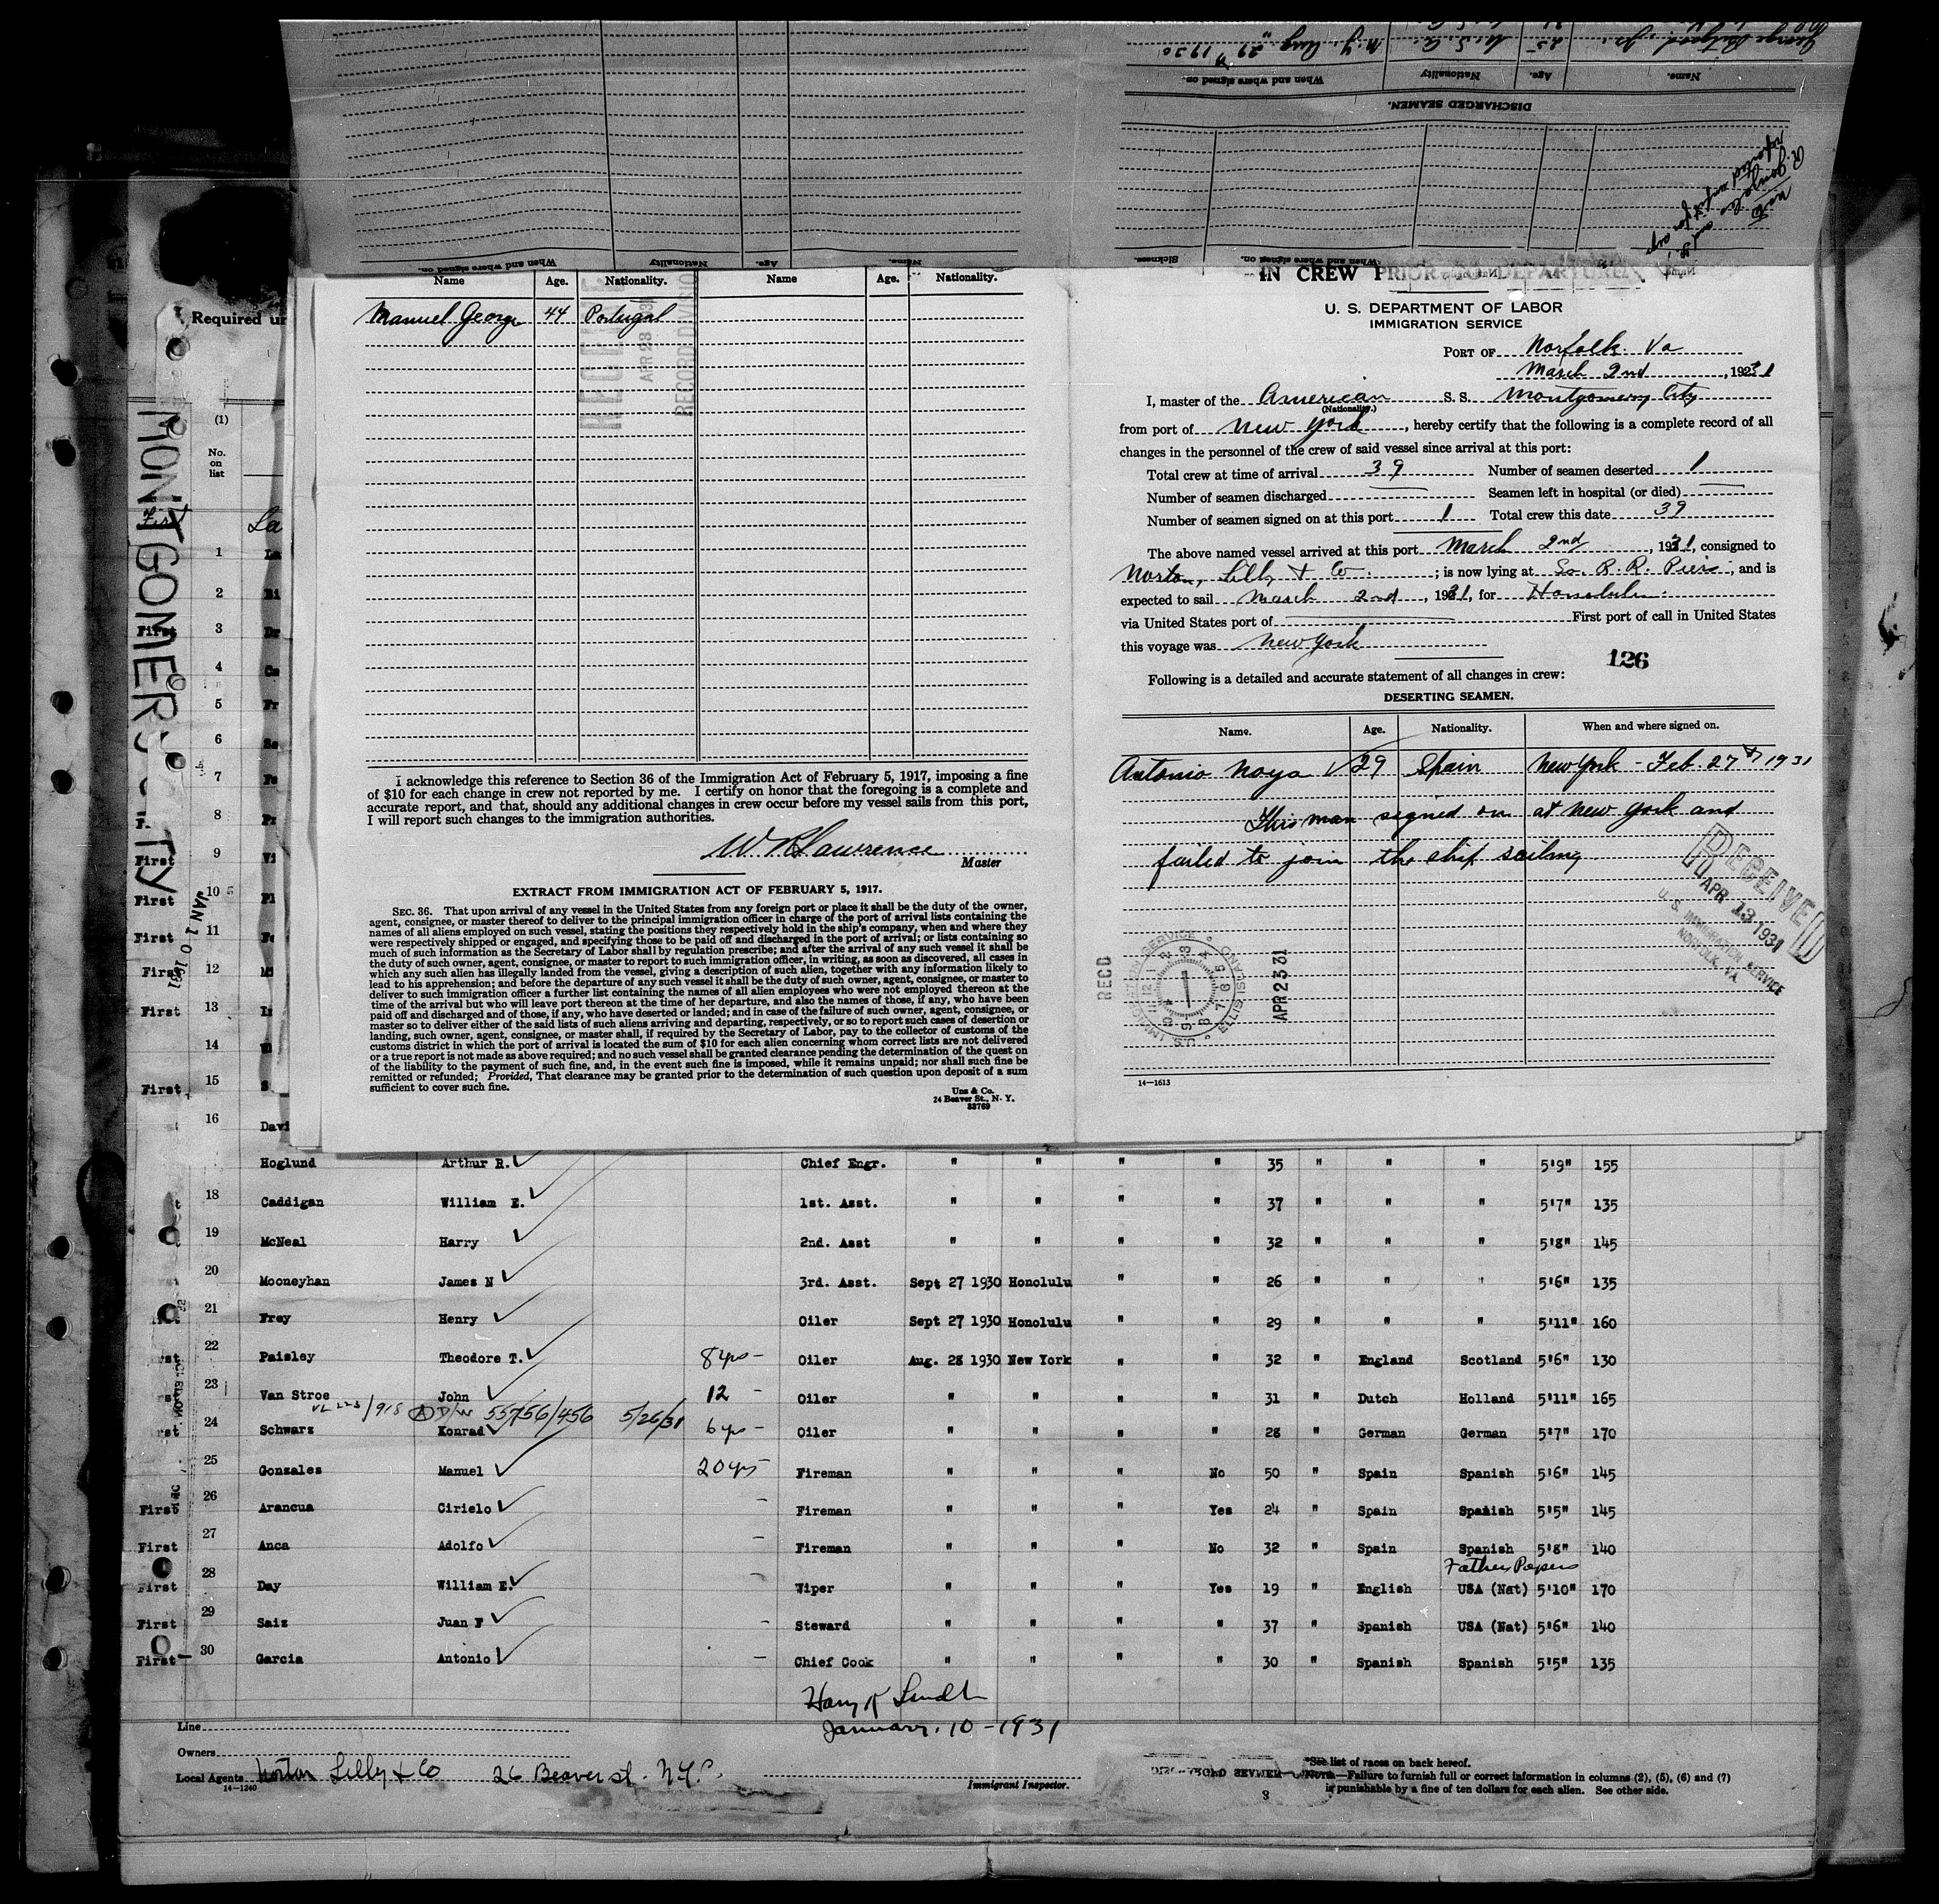 George
25
U. S. A.
N. Y. Aug. 29 1930
Name.
Age.
Nationality
When and where signed on.
DISCHARGED SEAMEN.
Sickness.
When and where signed on.
Nationality
Age.
Name.
Required un
MONTGOMERY CITY
JAN 10 1931
(1)
No.
on
list
Name Age. Nationality. Name Age. Nationality.
Manuel George 44 Portugal
APR 23 31
RECORD DIVISION
I acknowledge this reference to Section 36 of the Immigration Act of February 5, 1917, imposing a fine
of $10 for each change in crew not reported by me. I certify on honor that the foregoing is a complete and
accurate report, and that, should any additional changes in crew occur before my vessel sails from this port,
I will report such changes to the immigration authorities.
W R Lawrence
Master
EXTRACT FROM IMMIGRATION ACT OF FEBRUARY 5, 1917.
SEC. 36. That upon arrival of any vessel in the United States from any foreign port or place it shall be the duty of the owner,
agent, consignee, or master thereof to deliver to the principal immigration officer in charge of the port of arrival lists containing the
names of all aliens employed on such vessel, stating the positions they respectively hold in the ship's company, when and where they
were respectively shipped or engaged, and specifying those to be paid off and discharged in the port of arrival; or lists containing so
much of such information as the Secretary of Labor shall by regulation prescribe; and after the arrival of any such vessel it shall be
the duty of such owner, agent, consignee, or master to report to such immigration officer, in writing, as soon as discovered, all cases in
which any such alien has illegally landed from the vessel, giving a description of such alien, together with any information likely to
lead to his apprehension; and before the departure of any such vessel it shall be the duty of such owner, agent, consignee, or master to
deliver to such immigration officer a further list containing the names of all alien employees who were not employed thereon at the
time of the arrival but who will leave port thereon at the time of her departure, and also the names of those, if any, who have been
paid off and discharged and of those, if any, who have deserted or landed; and in case of the failure of such owner, agent, consignee, or
master so to deliver either of the said lists of such aliens arriving and departing, respectively, or so to report such cases of desertion or
landing, such owner, agent, consignee, or master shall, if required by the Secretary of Labor, pay to the collector of customs of the
customs district in which the port of arrival is located the sum of $10 for each alien concerning whom correct lists are not delivered
or a true report is not made as above required; and no such vessel shall be granted clearance pending the determination of the quest on
of the liability to the payment of such fine, and, in the event such fine is imposed, while it remains unpaid; nor shall such fine be
remitted or refunded; Provided, That clearance may be granted prior to the determination of such question upon deposit of a sum
sufficient to cover such fine.
Unz & Co.
24 Beaver St., N. Y.
33769
IN CREW PRIOR TO DEPARTURE
U. S. DEPARTMENT OF LABOR
IMMIGRATION SERVICE
PORT OF Norfolk Va
March 2nd, 1931
I, master of the American S. S. Montgomery City
(Nationality.)
from port of New York, hereby certify that the following is a complete record of all
changes in the personnel of the crew of said vessel since arrival at this port:
Total crew at time of arrival 39 Number of seamen deserted 1
Number of seamen discharged Seamen left in hospital (or died)
Number of seamen signed on at this port 1 Total crew this date 39
The above named vessel arrived at this port March 2nd, 1931, consigned to
Norton, Lilly & Co.; is now lying at So. R. R. Piers, and is
expected to sail March 2nd, 1931, for Honolulu.
via United States port of First port of call in United States
this voyage was New York
126
Following is a detailed and accurate statement of all changes in crew:
DESERTING SEAMEN.
Name. Age. Nationality. When and where signed on.
Antonio Noya 29 Spain New York - Feb. 27th 1931
This man signed on at New York and
failed to join the ship sailing
RECEIVED
APR 13 1931
U. S. IMMIGRATION SERVICE
NORFOLK, VA.
RECD
U.S. IMMIGRATION SERVICE ELLIS ISLAND
APR 23 31
14—1613
First
1 La
2
3 First
4
5 Fr
6
7
8
9 First Vi
10 First Pl
11 First
12 First
13 First
14
15 First
16 Davi
Hoglund Arthur R. Chief Engr. " " " " 35 " " " 5'9" 155
18 Caddigan William E. 1st. Asst. " " " " 37 " " " 5'7" 135
19 McNeal Harry 2nd. Asst " " " " 32 " " " 5'8" 145
20 Mooneyhan James N 3rd. Asst. Sept 27 1930 Honolulu " " 26 " " " 5'6" 135
21 Frey Henry Oiler Sept 27 1930 Honolulu " " 29 " " " 5'11" 160
22 Paisley Theodore T. 8 yrs - Oiler Aug. 28 1930 New York " " 32 " England Scotland 5'6" 130
23 Van Stroe John 12 - Oiler " " " " 31 " Dutch Holland 5'11" 165
/918 A D/W 55756/456 5/26/31
24 Schwarz Konrad 6 yrs - Oiler " " " " 28 " German German 5'7" 170
25 Gonzales Manuel 20 yrs Fireman " " " No 50 " Spain Spanish 5'6" 145
First 26 Arancua Cirielo - Fireman " " " Yes 24 " Spain Spanish 5'5" 145
First 27 Anca Adolfo - Fireman " " " No 32 " Spain Spanish 5'8" 140
Father Papers
First 28 Day William E. - Wiper " " " Yes 19 " English USA (Nat) 5'10" 170
First 29 Saiz Juan F - Steward " " " " 37 " Spanish USA (Nat) 5'6" 140
First 30 Garcia Antonio - Chief Cook " " " " 30 " Spanish Spanish 5'5" 135
January. 10 - 1931
Line
Owners
Local Agents Norton Lilly & Co 26 Beaver st. N.Y.C.
14—1240
Immigrant Inspector.
*See list of races on back hereof.
NOTE.—Failure to furnish full or correct information in columns (2), (5), (6) and (7)
is punishable by a fine of ten dollars for each alien. See other side.
3